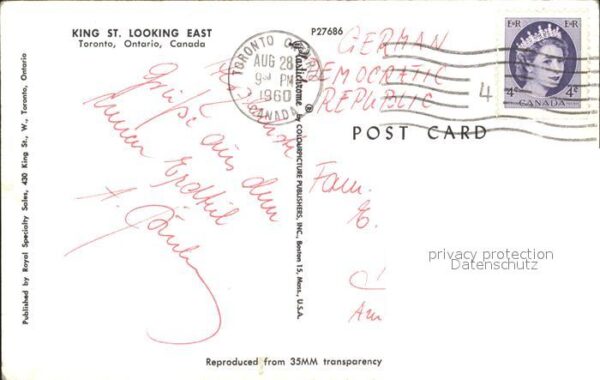 KING ST. LOOKING EAST
Toronto, Ontario, Canada
P27686
TORONTO
AUG 28
9 PM
1960
CANADA
E II R E II R
4c 4c
CANADA
4
GERMAN
DEMOCRATIC
REPUBLIC
POST CARD
Grüße aus dem
Erdteil
A.
Fam.
E.
Am
privacy protection
Datenschutz
Plastichrome ® by COLOURPICTURE PUBLISHERS, INC., Boston 15, Mass., U.S.A.
Published by Royal Specialty Sales, 430 King St., W., Toronto, Ontario
Reproduced from 35MM transparency